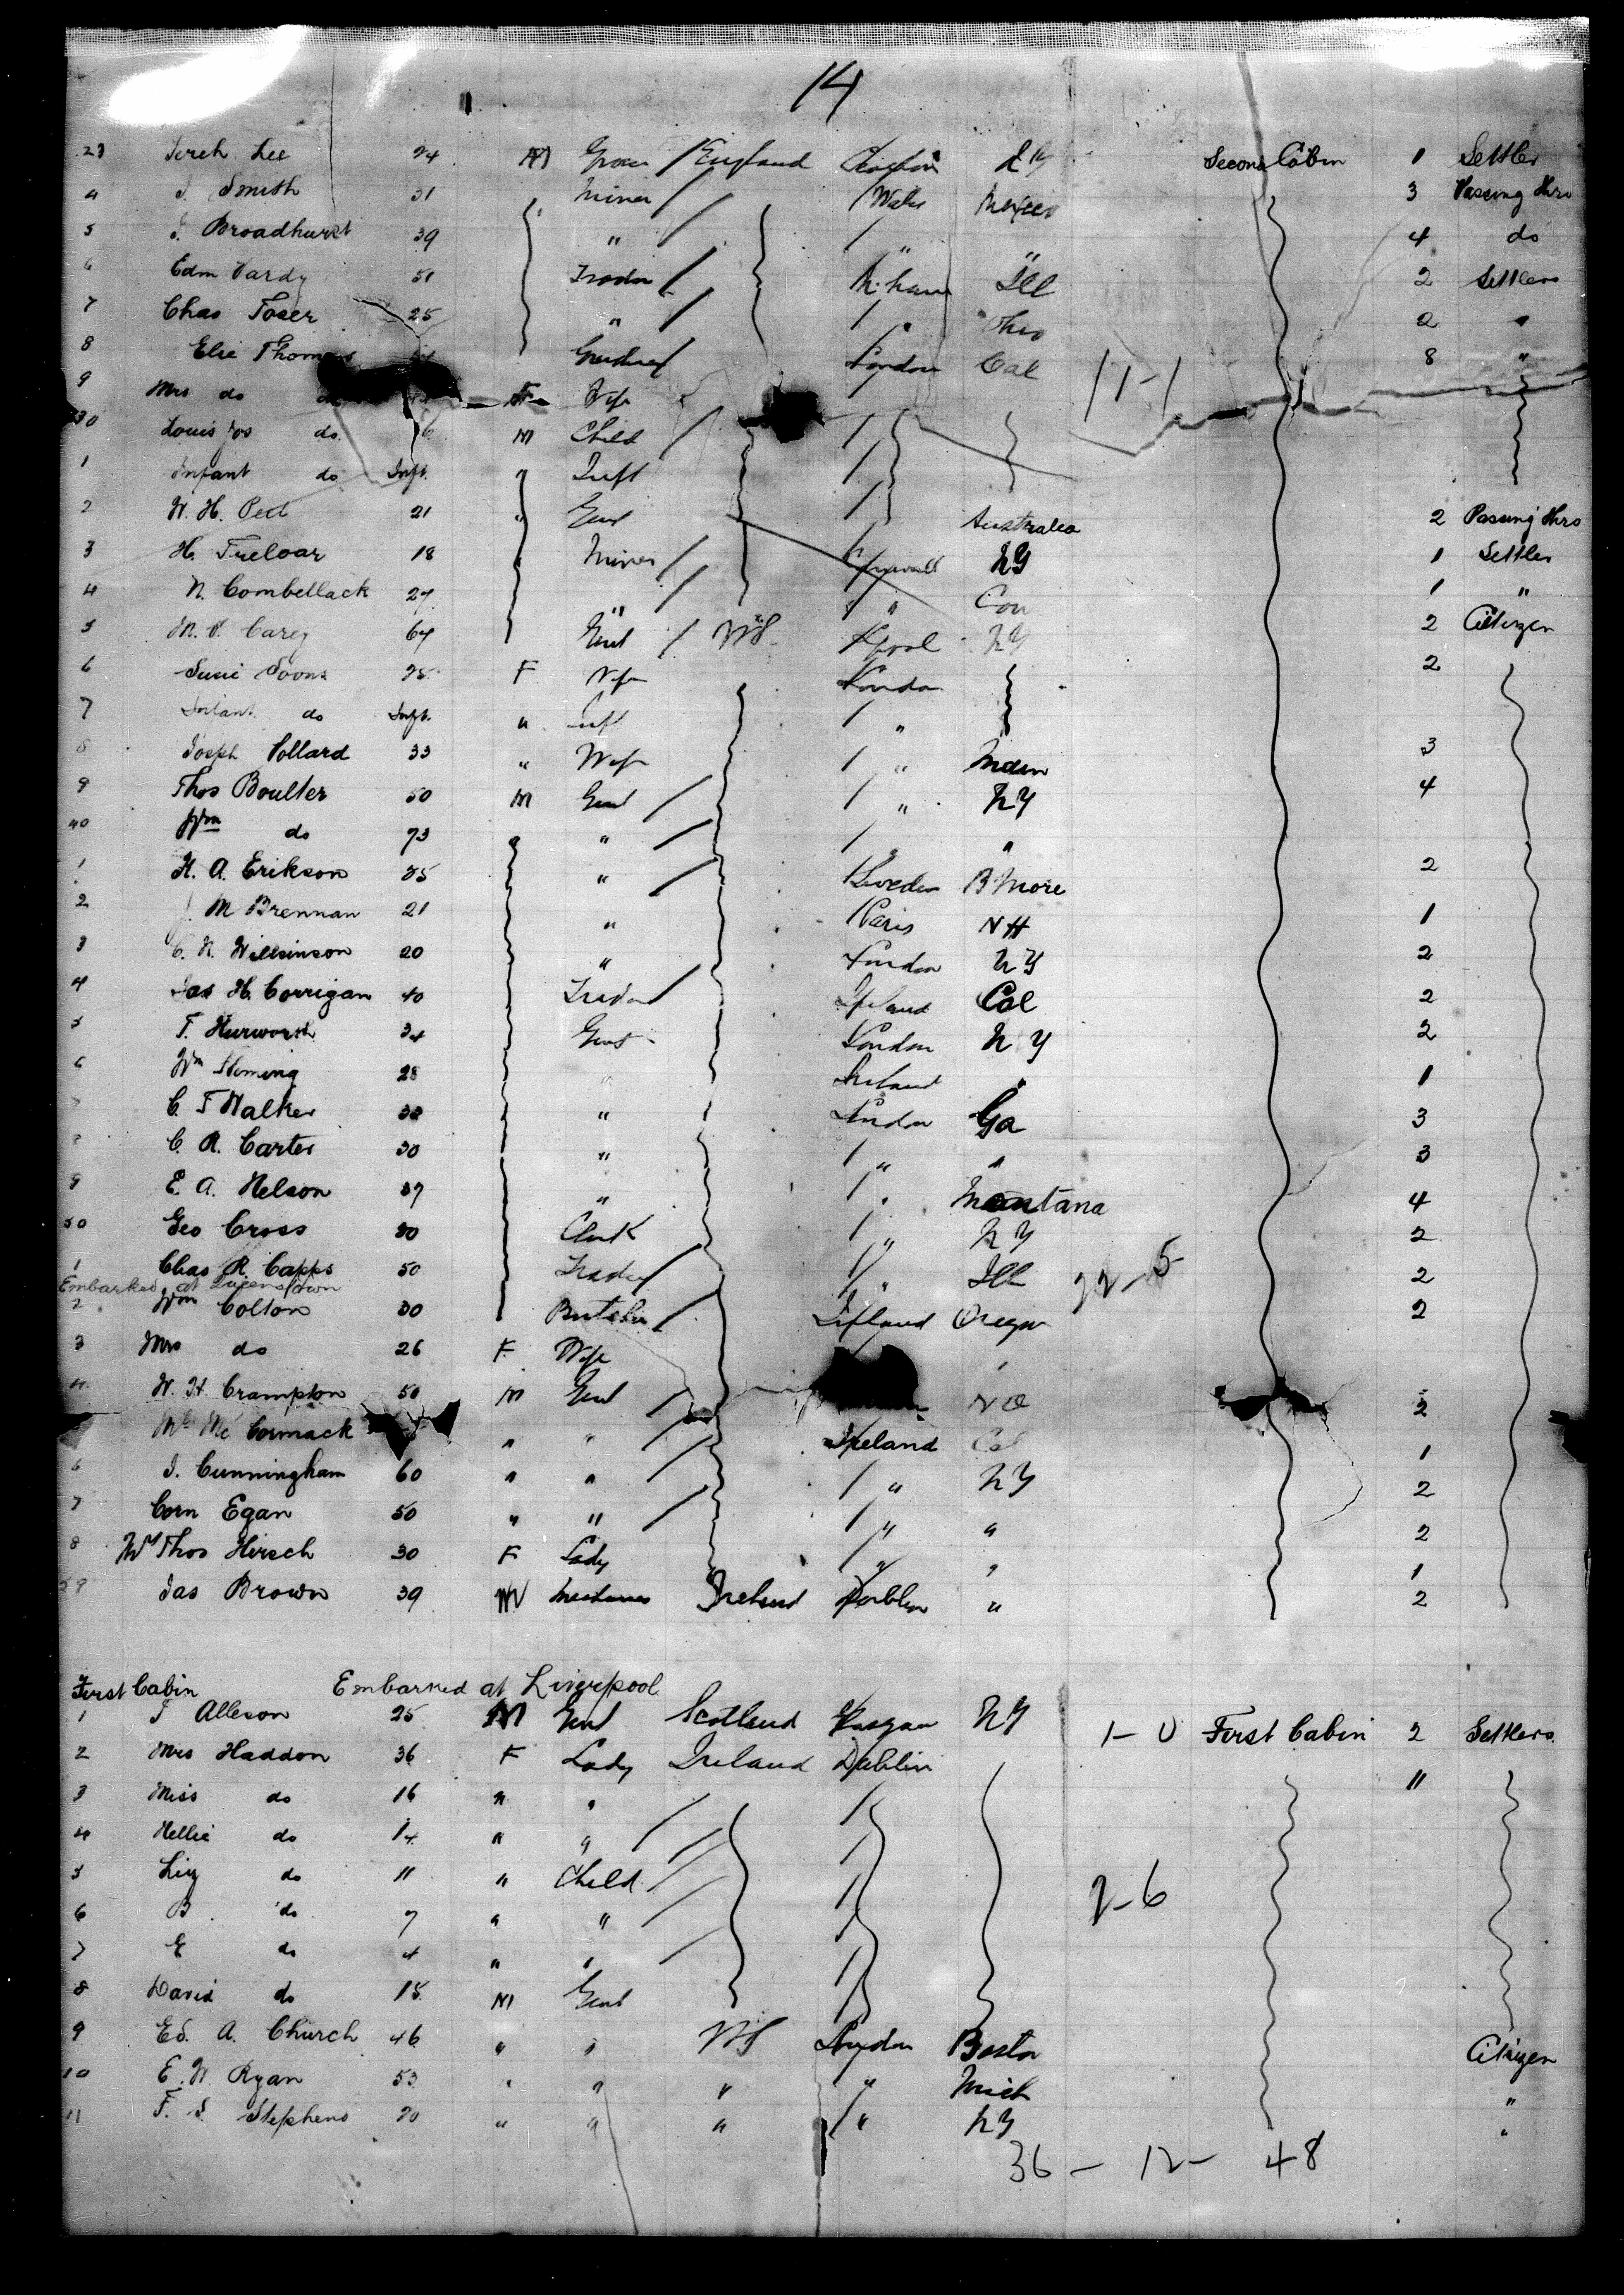 14
23 Lee 24 M England N Y Second Cabin 1 Settler
4 Smith 31 Miner Wales Mexico 3 Passing thro
5 Broadhurst 39 " " " 4 do
6 Edm Vardy 51 Ill 2 Settlers
7 Chas Toser 25 " " Ohio 2 "
8 Elie Thomas London Cal 8 "
9 Mrs do do F Wife
30 Louis Jos do 6 M Child
1 Infant do Inft. " Inft
2 W. H. 21 " Gent Australia 2 Passing thro
3 H. Treloar 18 Miner Cornwall N Y 1 Settler
4 N. Combellack 27 " " Con 1 "
5 Carey 64 Gent U S L'pool N Y 2 Citizen
6 Susie 25 F Wife London 2
7 Infant do Inft. " Inft "
8 Joseph Pollard 33 " Wife " 3
9 Thos Boulter 50 M Gent " N Y 4
40 Wm do 73 " " "
1 H. A. Erikson 35 " Sweden B'More 2
2 M Brennan 21 " Paris N H 1
3 C. N. Wilkinson 20 " London N Y 2
4 Jas H. Corrigan 40 Trader Ireland Cal 2
5 T. Hurworth 34 Gent London N Y 2
6 Wm Fleming 28 " Ireland " 1
7 C. F Walker 32 " London Ga 3
8 C. R. Carter 30 " " " 3
9 E. A. Nelson 37 " " Montana 4
50 Geo Cross 30 Clerk " N Y 2
1 Chas R. Capps 50 Trader " Ill 2
Embarked at Queenstown
2 Wm Colton 30 Butcher Ireland Oregon 2
3 Mrs do 26 F. Wife "
4 W. H. Crampton 50 M Gent N O 2
5 Mc Cormack " " Ireland Cal 1
6 J. Cunningham 60 " " " N Y 2
7 Corn Egan 50 " " " " 2
8 Thos Hirsch 30 F Lady " " 1
59 Jas Brown 39 M Ireland Dublin " 2
First Cabin Embarked at Liverpool
1 J Alleson 25 M Gent Scotland Glasgow N Y 1-0 First Cabin 2 Settlers.
2 Mrs Haddon 36 F Lady Ireland Dublin 11
3 Miss do 16 " "
4 Nellie do 14 " "
5 Liz do 11 " Child
6 B. do 7 " " 2-6
7 E do 4 " "
8 David do 15 M Gent
9 Ed. A. Church 46 " " U S London Boston Citizen
10 E. N. Ryan 53 " " " " Mich "
11 F. S. Stephens 20 " " " " N Y "
36 - 12 - 48